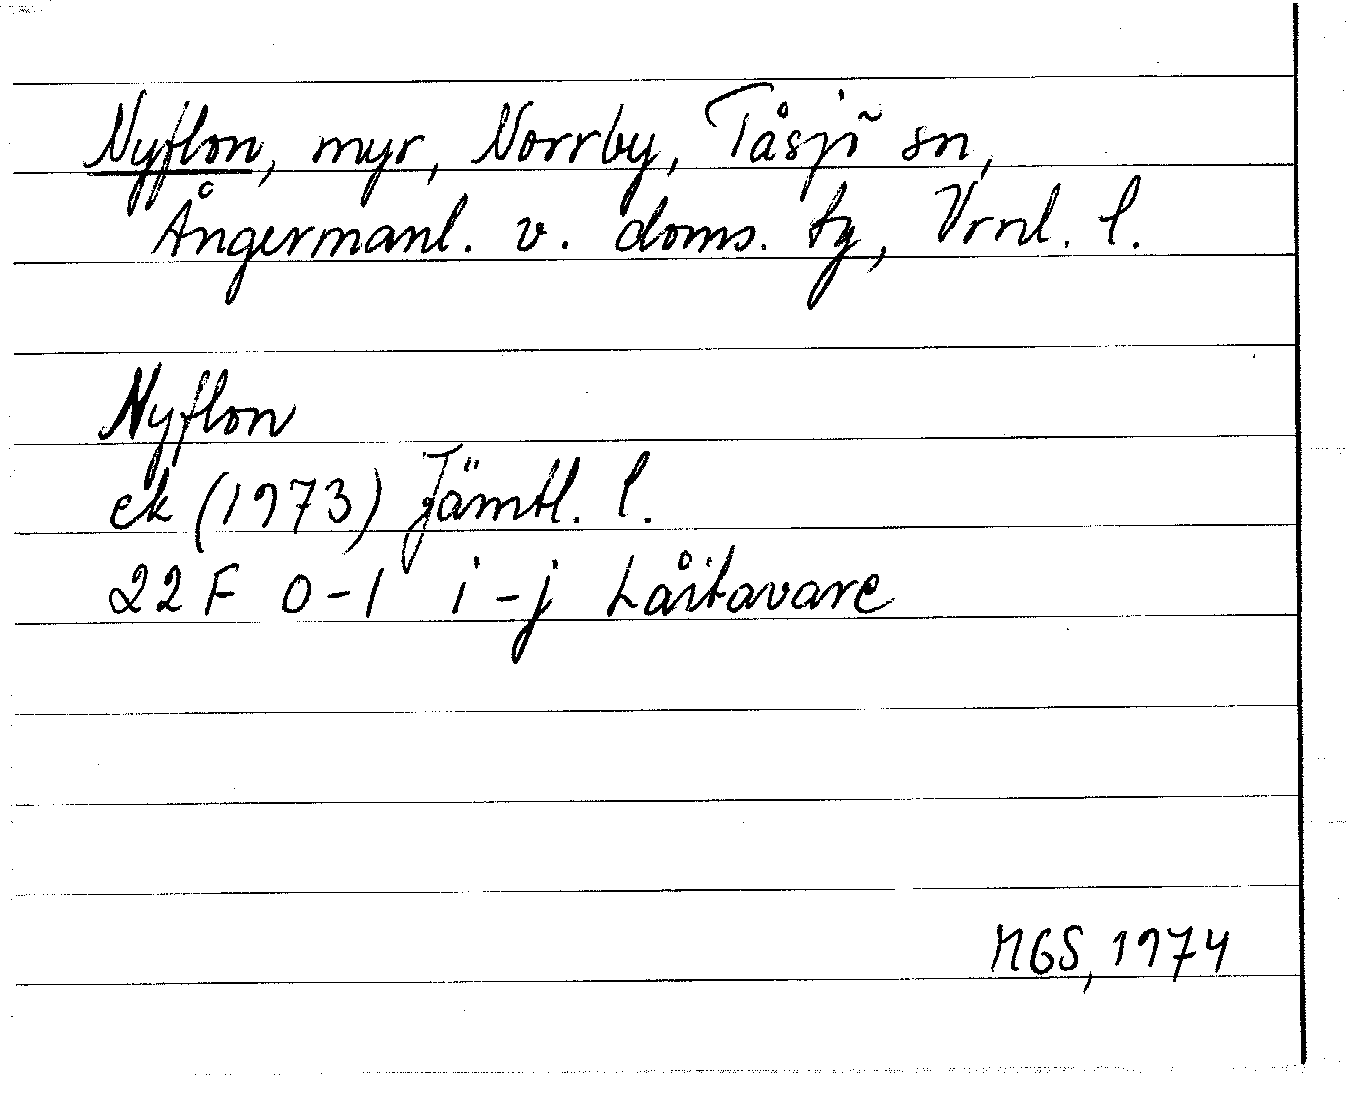 Nyflon, myr, Norrby, Tåsjö sn,
Ångermanl. v. doms. tg, Vrnl. l.
Nyflon
ek (1973) Jämtl. l.
22 F 0-1 i-j Låitavare
MGS, 1974